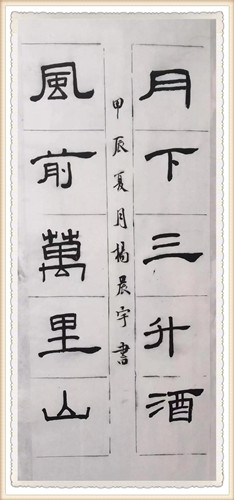 月下三升酒
風前萬里山
甲辰夏月楊晨宇書